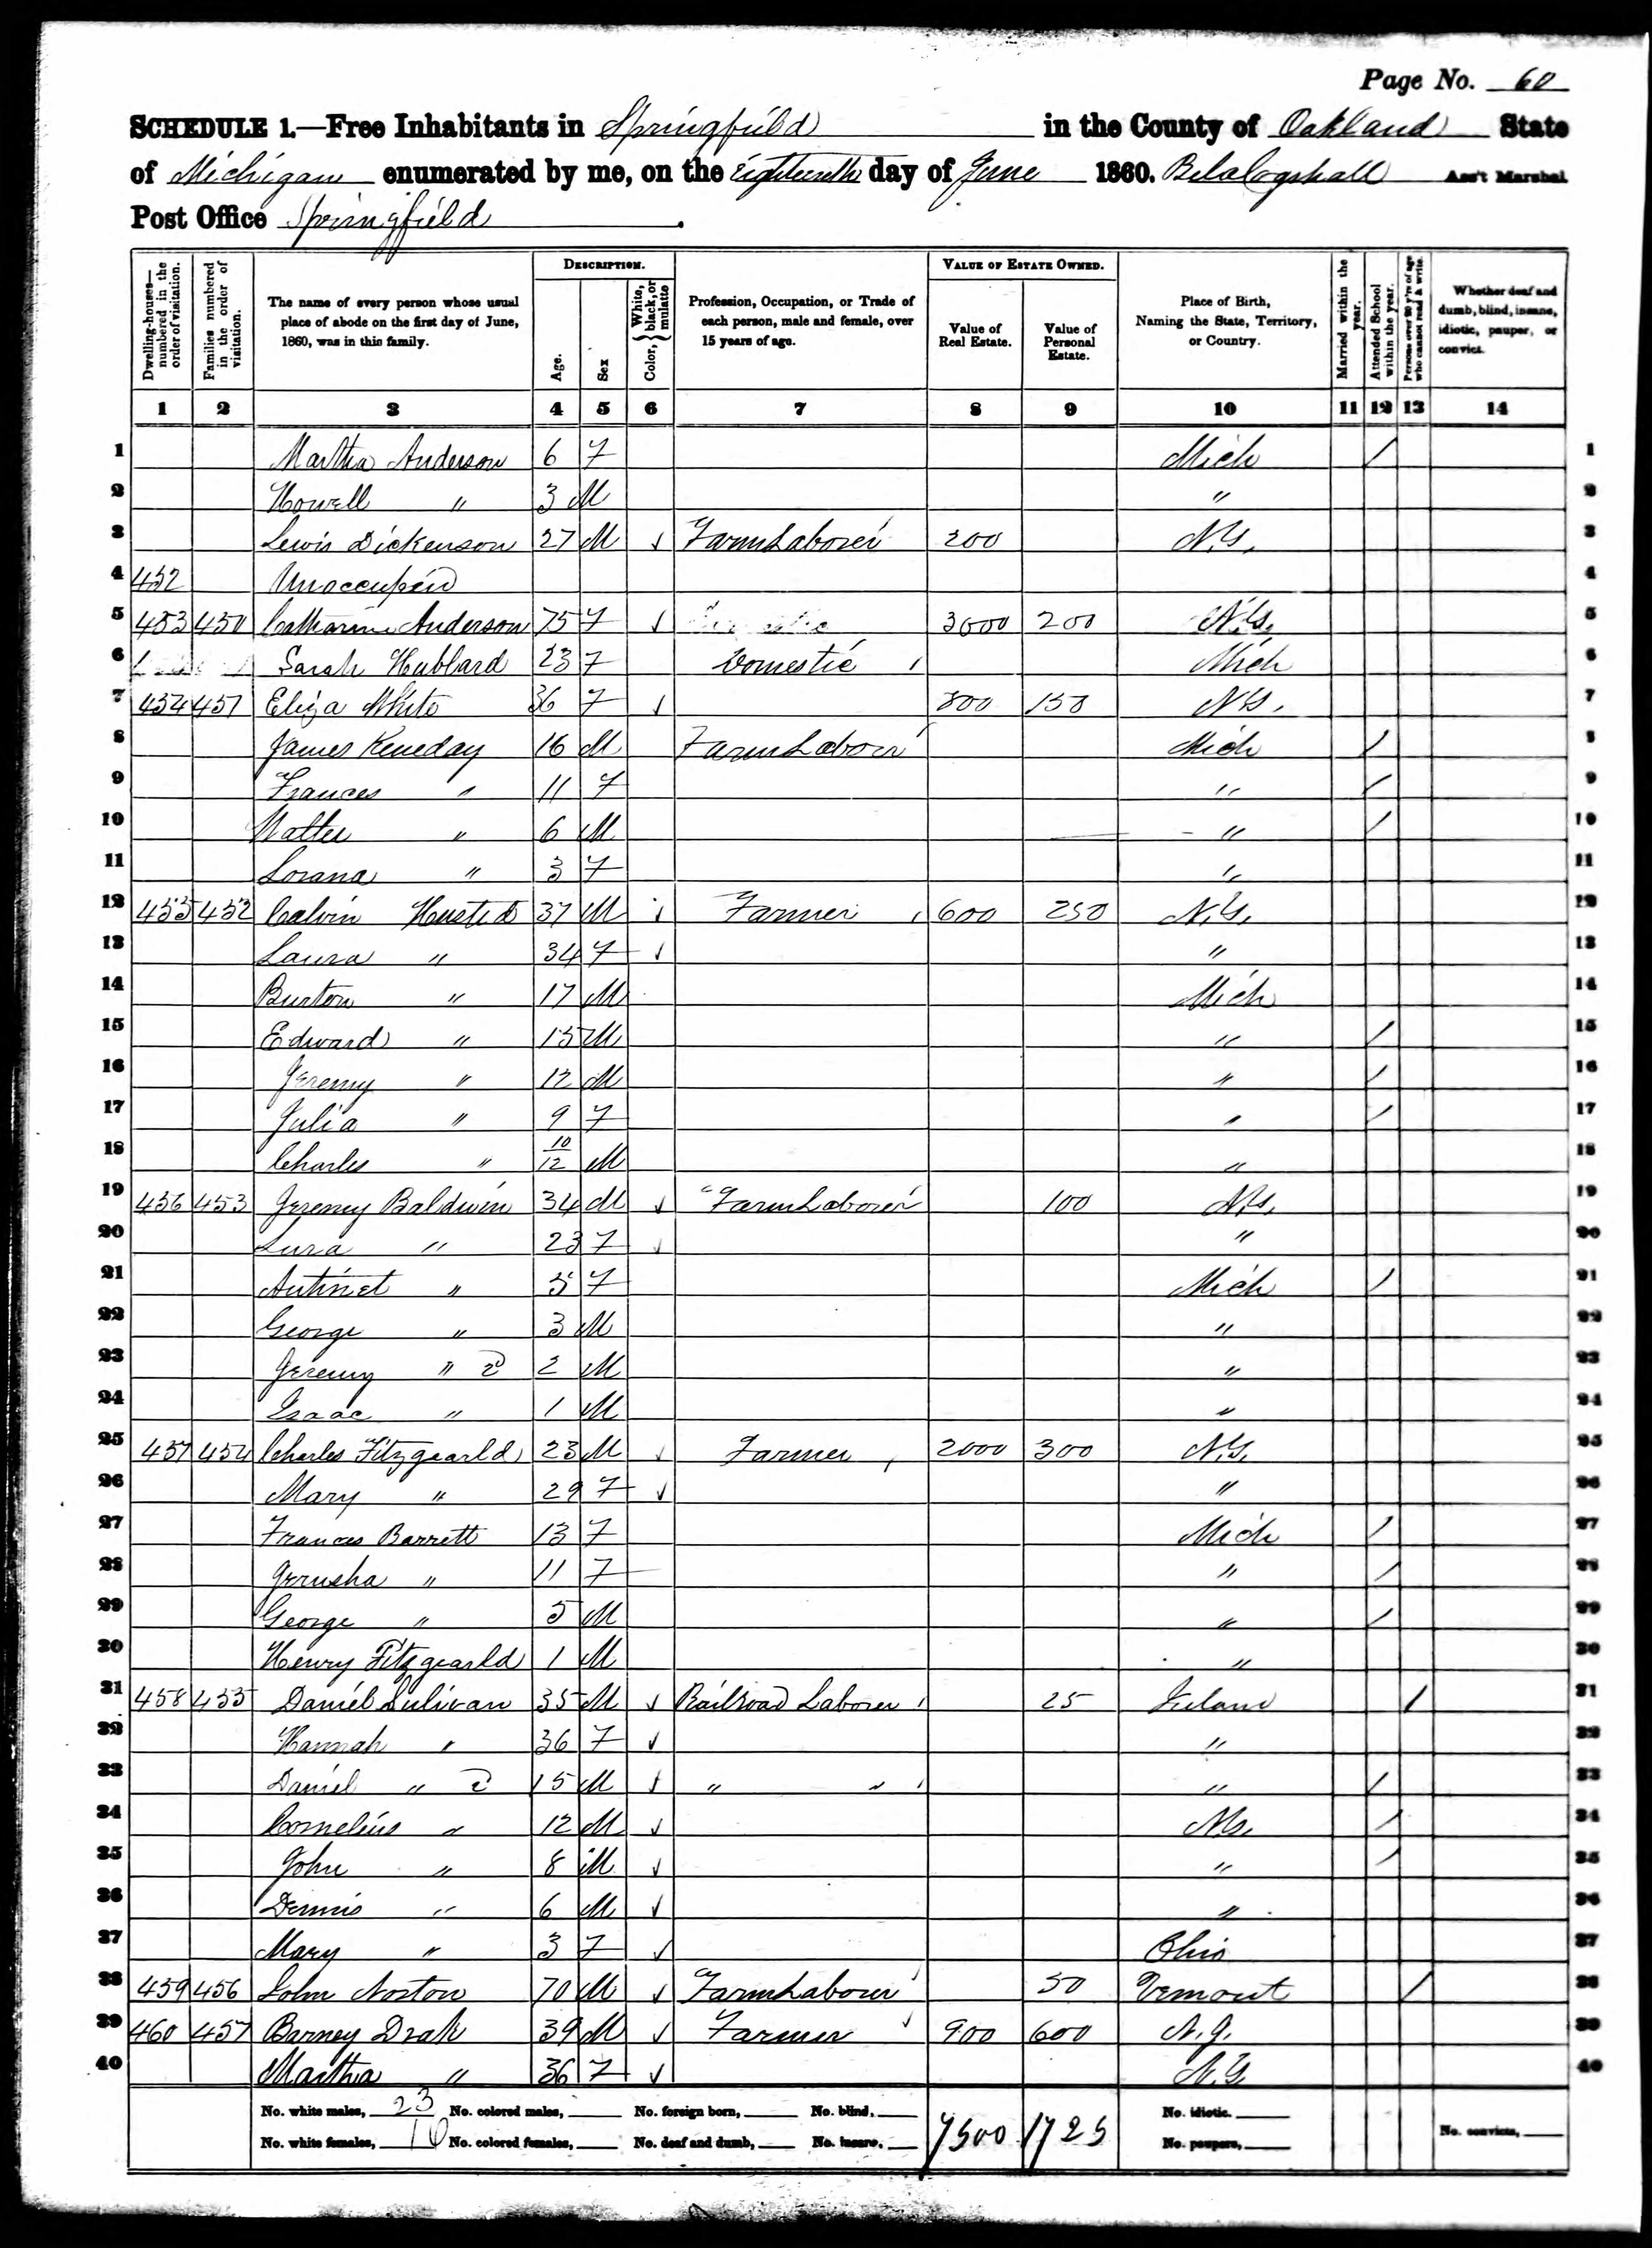 Page No. 60
SCHEDULE 1.—Free Inhabitants in Springfield in the County of Oakland State
of Michigan enumerated by me, on the Eighteenth day of June 1860. Bela Cogshall Ass't Marshal
Post Office Springfield.
Dwelling-houses—numbered in the order of visitation.
Families numbered in the order of visitation.
The name of every person whose usual place of abode on the first day of June, 1860, was in this family.
DESCRIPTION.
Age.
Sex
Color, } White, black, or mulatto
Profession, Occupation, or Trade of each person, male and female, over 15 years of age.
VALUE OF ESTATE OWNED.
Value of Real Estate.
Value of Personal Estate.
Place of Birth, Naming the State, Territory, or Country.
Married within the year.
Attended School within the year.
Persons over 20 y'rs of age who cannot read & write.
Whether deaf and dumb, blind, insane, idiotic, pauper, or convict.
1 2 3 4 5 6 7 8 9 10 11 12 13 14
1 Martha Anderson 6 F Mich / 1
2 Howell " 3 M " 2
3 Lewis Dickenson 27 M ✓ Farm Laborer 200 N.Y. 3
4 452 Unoccupied 4
5 453 450 Catharine Anderson 75 F ✓ 3000 200 N.Y. 5
6 Sarah Hubbard 23 F Domestic Mich 6
7 454 451 Eliza White 36 F ✓ 800 150 N.Y. 7
8 James Keneday 16 M Farm Laborer Mich / 8
9 Frances " 11 F " / 9
10 Walter " 6 M " / 10
11 Lorana " 3 F " 11
12 455 452 Calvin Husted 37 M ✓ Farmer 600 250 N.Y. 12
13 Laura " 34 F ✓ " 13
14 Burton " 17 M Mich 14
15 Edward " 15 M " / 15
16 Jeremy " 12 M " / 16
17 Julia " 9 F " / 17
18 Charles " 10/12 M " 18
19 456 453 Jeremy Baldwin 34 M ✓ Farm Laborer 100 N.Y. 19
20 Lura " 23 F ✓ " 20
21 Antinet " 5 F Mich / 21
22 George " 3 M " 22
23 Jeremy " 2 2 M " 23
24 Isaac " 1 M " 24
25 457 454 Charles Fitzgearld 23 M ✓ Farmer 2000 300 N.Y. 25
26 Mary " 29 F ✓ " 26
27 Frances Barrett 13 F Mich / 27
28 Jerusha " 11 F " / 28
29 George " 5 M " / 29
30 Henry Fitzgearld 1 M " 30
31 458 455 Daniel Sulivan 35 M ✓ Railroad Laborer 25 Ireland / 31
32 Hannah " 36 F ✓ " 32
33 Daniel " 2 15 M ✓ " " " / 33
34 Cornelius " 12 M ✓ N.Y. / 34
35 John " 8 M ✓ " / 35
36 Dennis " 6 M ✓ " 36
37 Mary " 3 F ✓ Ohio 37
38 459 456 John Norton 70 M ✓ Farm Laborer 50 Vermont / 38
39 460 457 Barney Drak 39 M ✓ Farmer 900 600 N.J. 39
40 Martha " 36 F ✓ N.Y. 40
No. white males, 23 No. colored males, No. foreign born, No. blind, 7500 1725 No. idiotic.
No. white females, 16 No. colored females, No. deaf and dumb, No. insane, No. paupers, No. convicts,